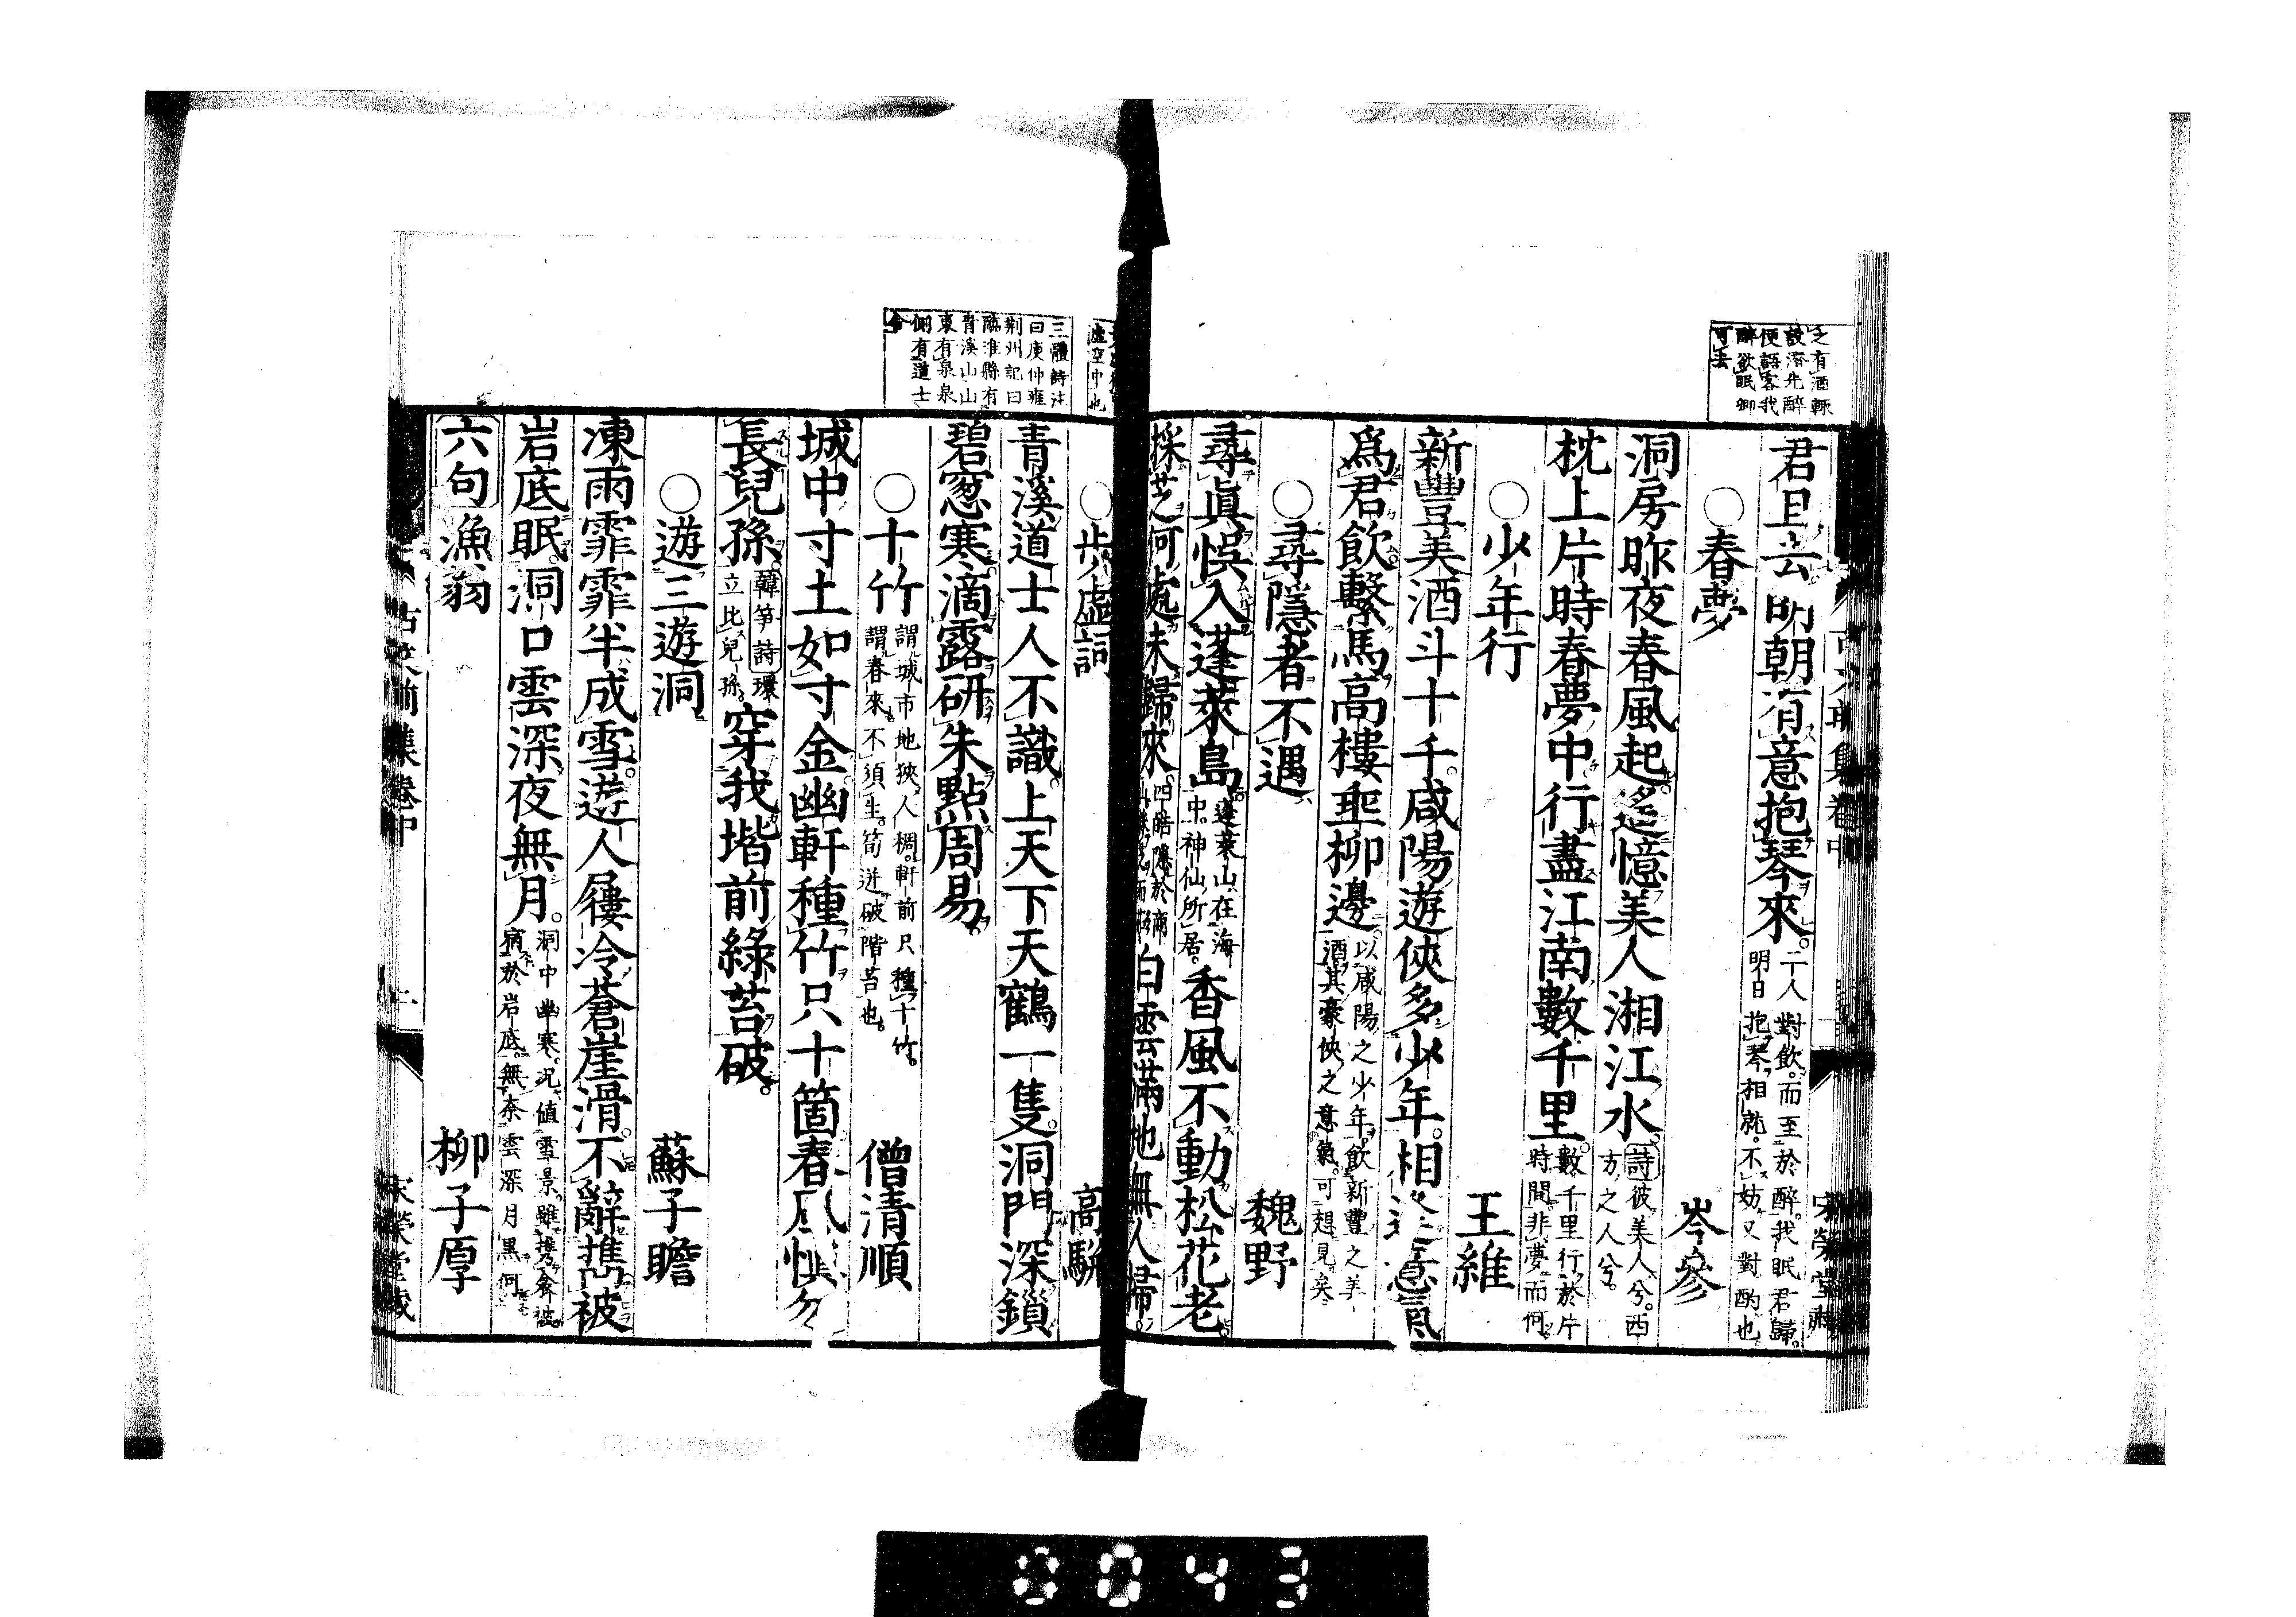 之有酒輒
設潛先醉
便語客我
醉欲眠卿
可去
君且去明朝有意抱琴來
二人對飮而至於醉我眠君歸
明日抱琴相就不妨又對酌也
○春夢 岑參
洞房昨夜春風起遙憶美人湘江水
詩彼美人兮西
方之人兮
枕上片時春夢中行盡江南數千里
數千里行於片
時間非夢而何
○少年行 王維
新豐美酒斗十千咸陽遊俠多少年相逢意氣
爲君飮繫馬高樓垂柳邊
以咸陽之少年飮新豐之美
酒其豪俠之意氣可想見矣
○尋隱者不遇 魏野
尋眞悞入蓬萊島
蓬萊山在海
中神仙所居
香風不動松花老
採芝何處未歸來
四皓隱於商
白雲滿地無人掃
虛空中也
○步虛詞 高駢
三體詩注
曰庾仲雍
荆州記曰
臨淮縣有
青溪山山
東有泉泉
側有道士
舍
青溪道士人不識上天下天鶴一隻洞門深鎖
碧窻寒滴露研朱點周易
○十竹 僧清順
謂城市地狹人稠軒前只種十竹
謂春來不須生筍迸破階苔也
城中寸土如寸金幽軒種竹只十箇春風愼勿
長兒孫
韓笋詩環
立比兒孫
穿我堦前綠苔破
○遊三遊洞 蘇子瞻
凍雨霏霏半成雪遊人屨冷蒼崖滑不辭攜被
岩底眠洞口雲深夜無月
洞中幽寒況値雪景雖攜衾被
宿於岩底無奈雲深月黑何
六句 漁翁 柳子厚
古文前集卷中 二 宋榮堂藏